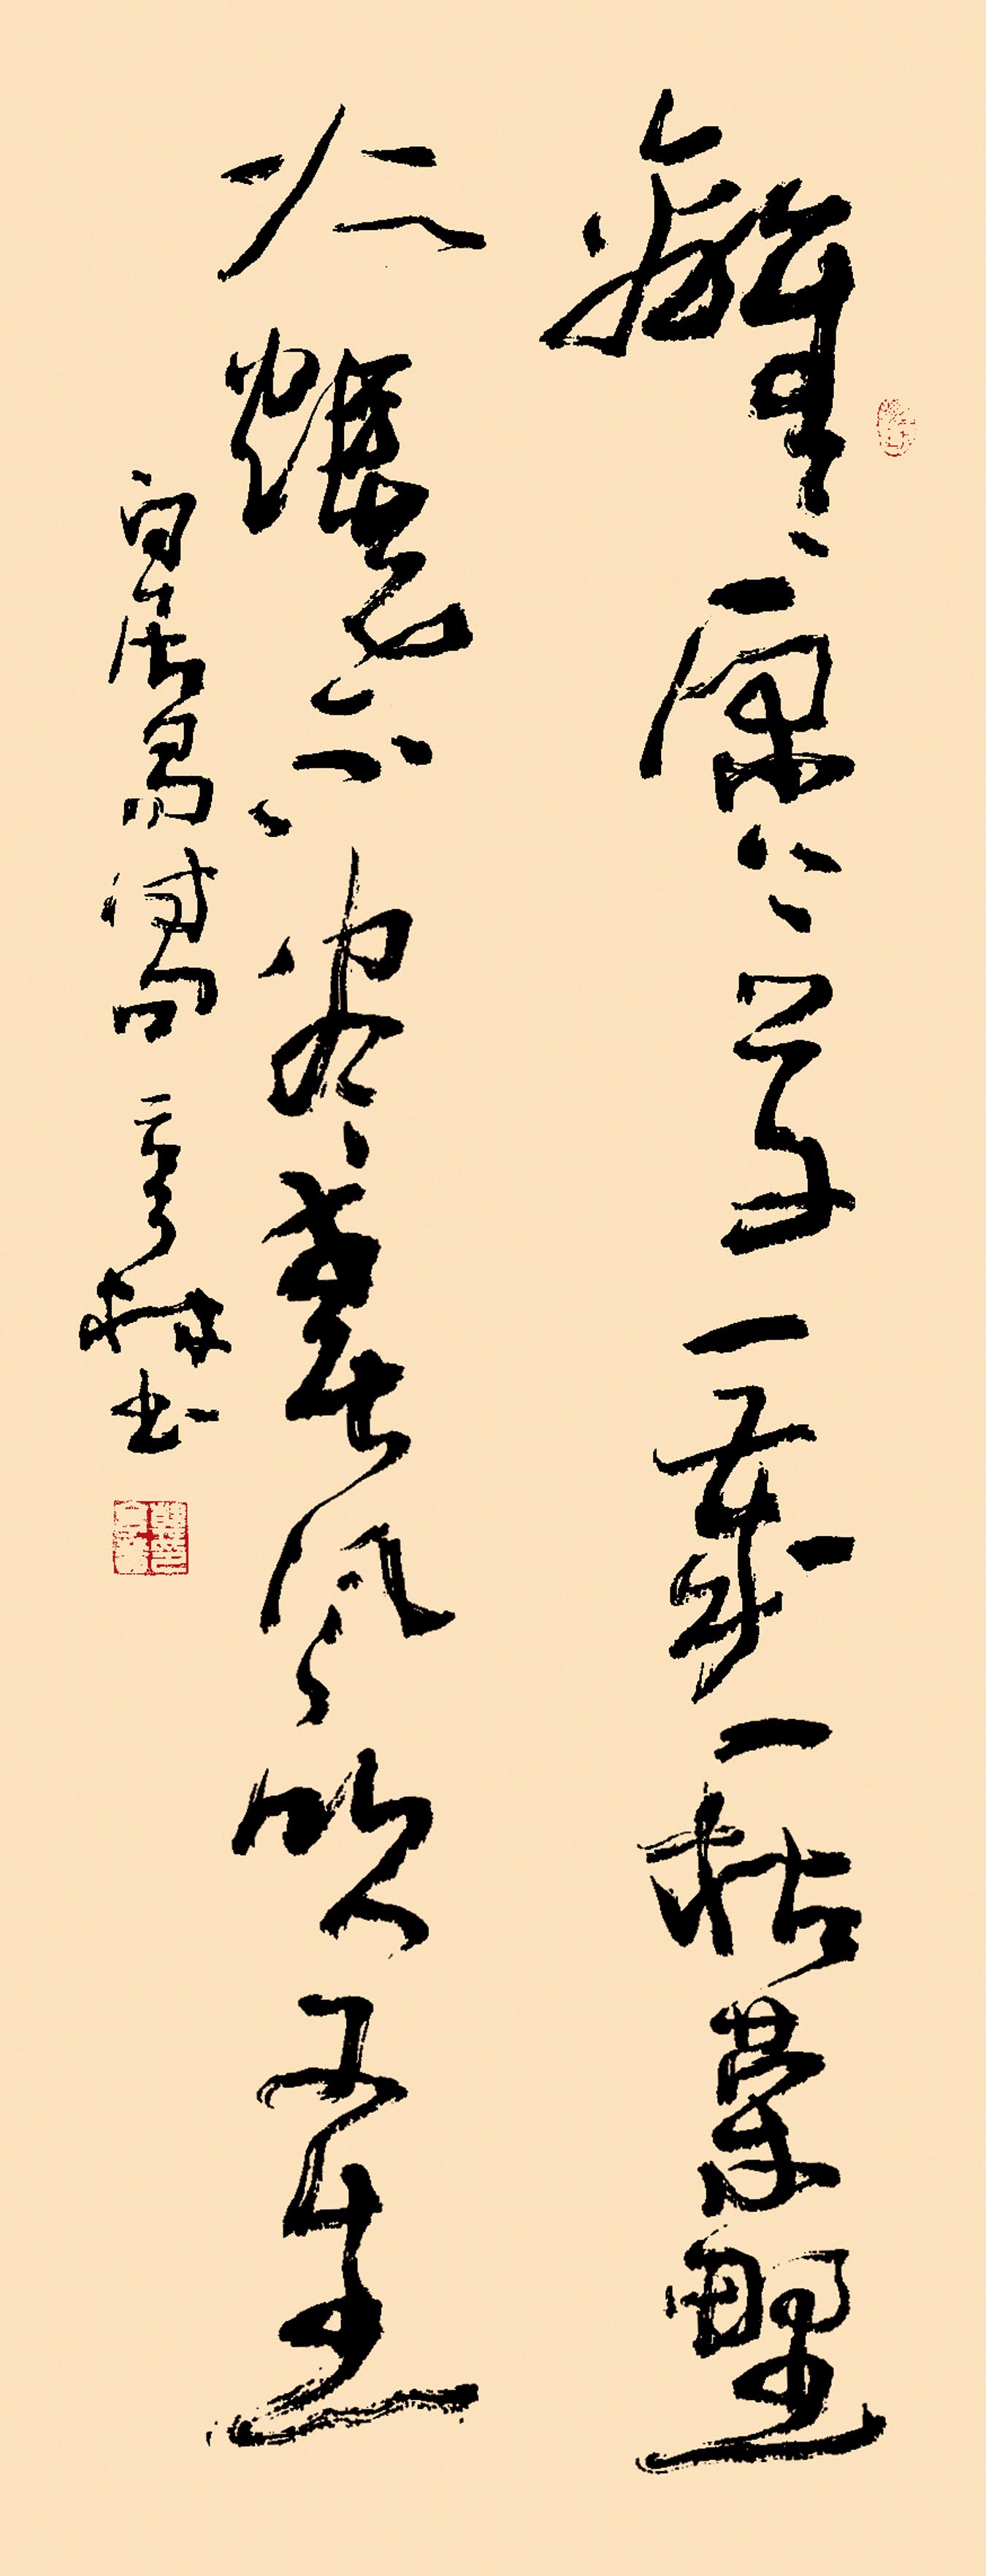 離〻原上草一歲一枯榮野
火燒不盡春風吹又生
白居易诗句 林书